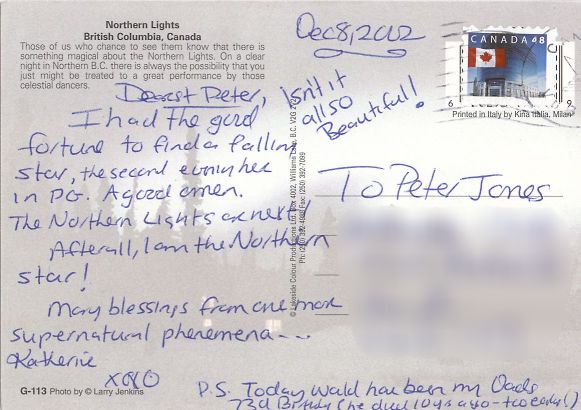 Northern Lights
British Columbia, Canada
Those of us who chance to see them know that there is
something magical about the Northern Lights. On a clear
night in Northern B.C. there is always the possibility that you
just might be treated to a great performance by those
celestial dancers.
Dec 8, 2002
CANADA 48
Printed in Italy by Kina Italia, Milan
Dearest Peter,
isn't it
all so
Beautiful!
I had the good
fortune to find a falling
star, the second evening here
in PG. A good omen.
The Northern Lights are next!
Afterall, I am the Northern
star!
Many blessings from one more
supernatural phenomena---
Katherine
XOXO
To Peter Jones
© Lakeside Colour Productions Ltd. Box 4002, Williams Lake, B.C. V2G 2V2
Ph: (250) 392-4089 Fax: (250) 392-7099
G-113 Photo by © Larry Jenkins
P.S. Today would have been my Dads
73rd Birthday (he died 10 yrs ago - too early!)